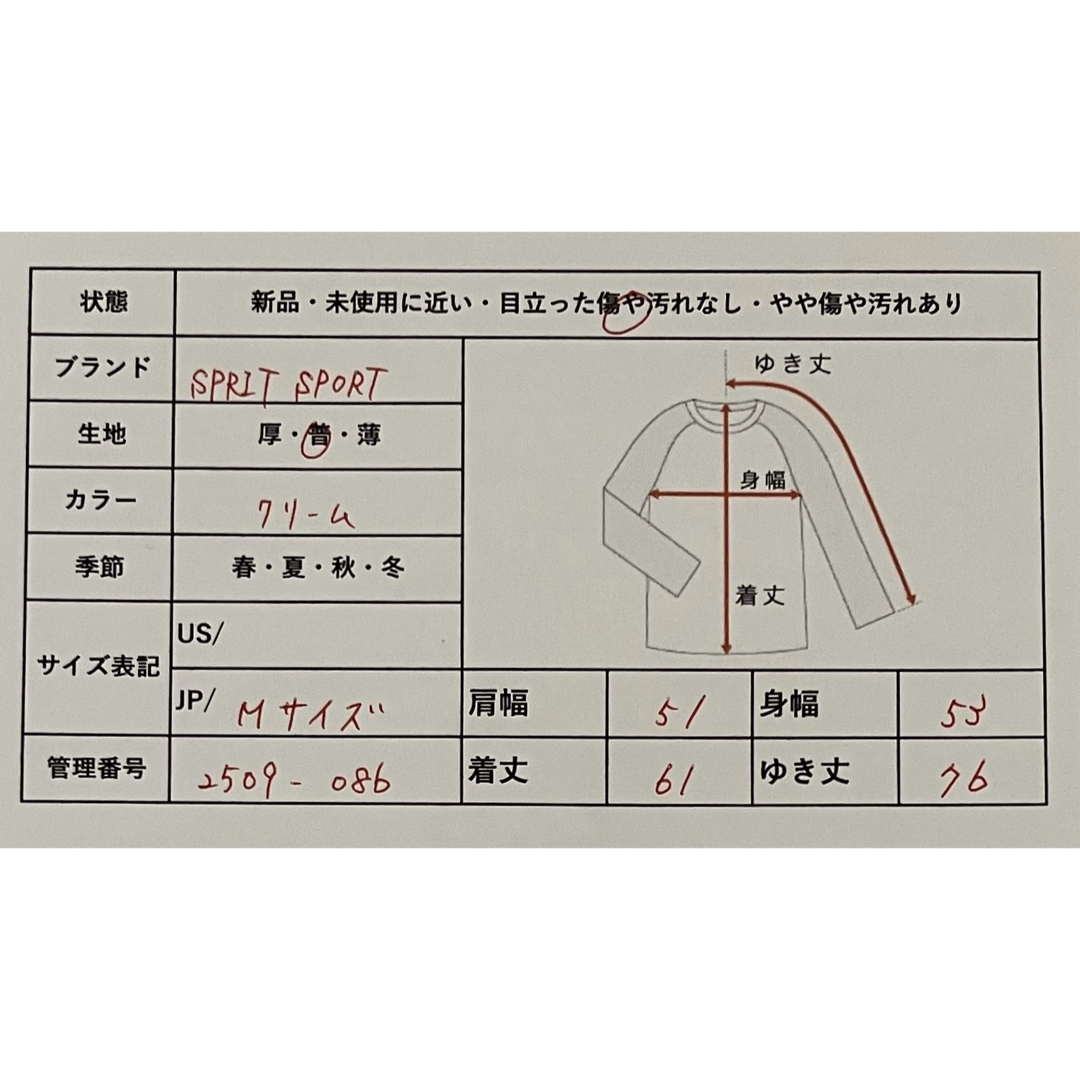 状態 新品・未使用に近い・目立った傷や汚れなし・やや傷や汚れあり
ブランド SPRIT SPORT
ゆき丈
生地 厚・普・薄
身幅
カラー クリーム
季節 春・夏・秋・冬
着丈
サイズ表記 US/
JP/ Mサイズ 肩幅 51 身幅 53
管理番号 2509-086 着丈 61 ゆき丈 76